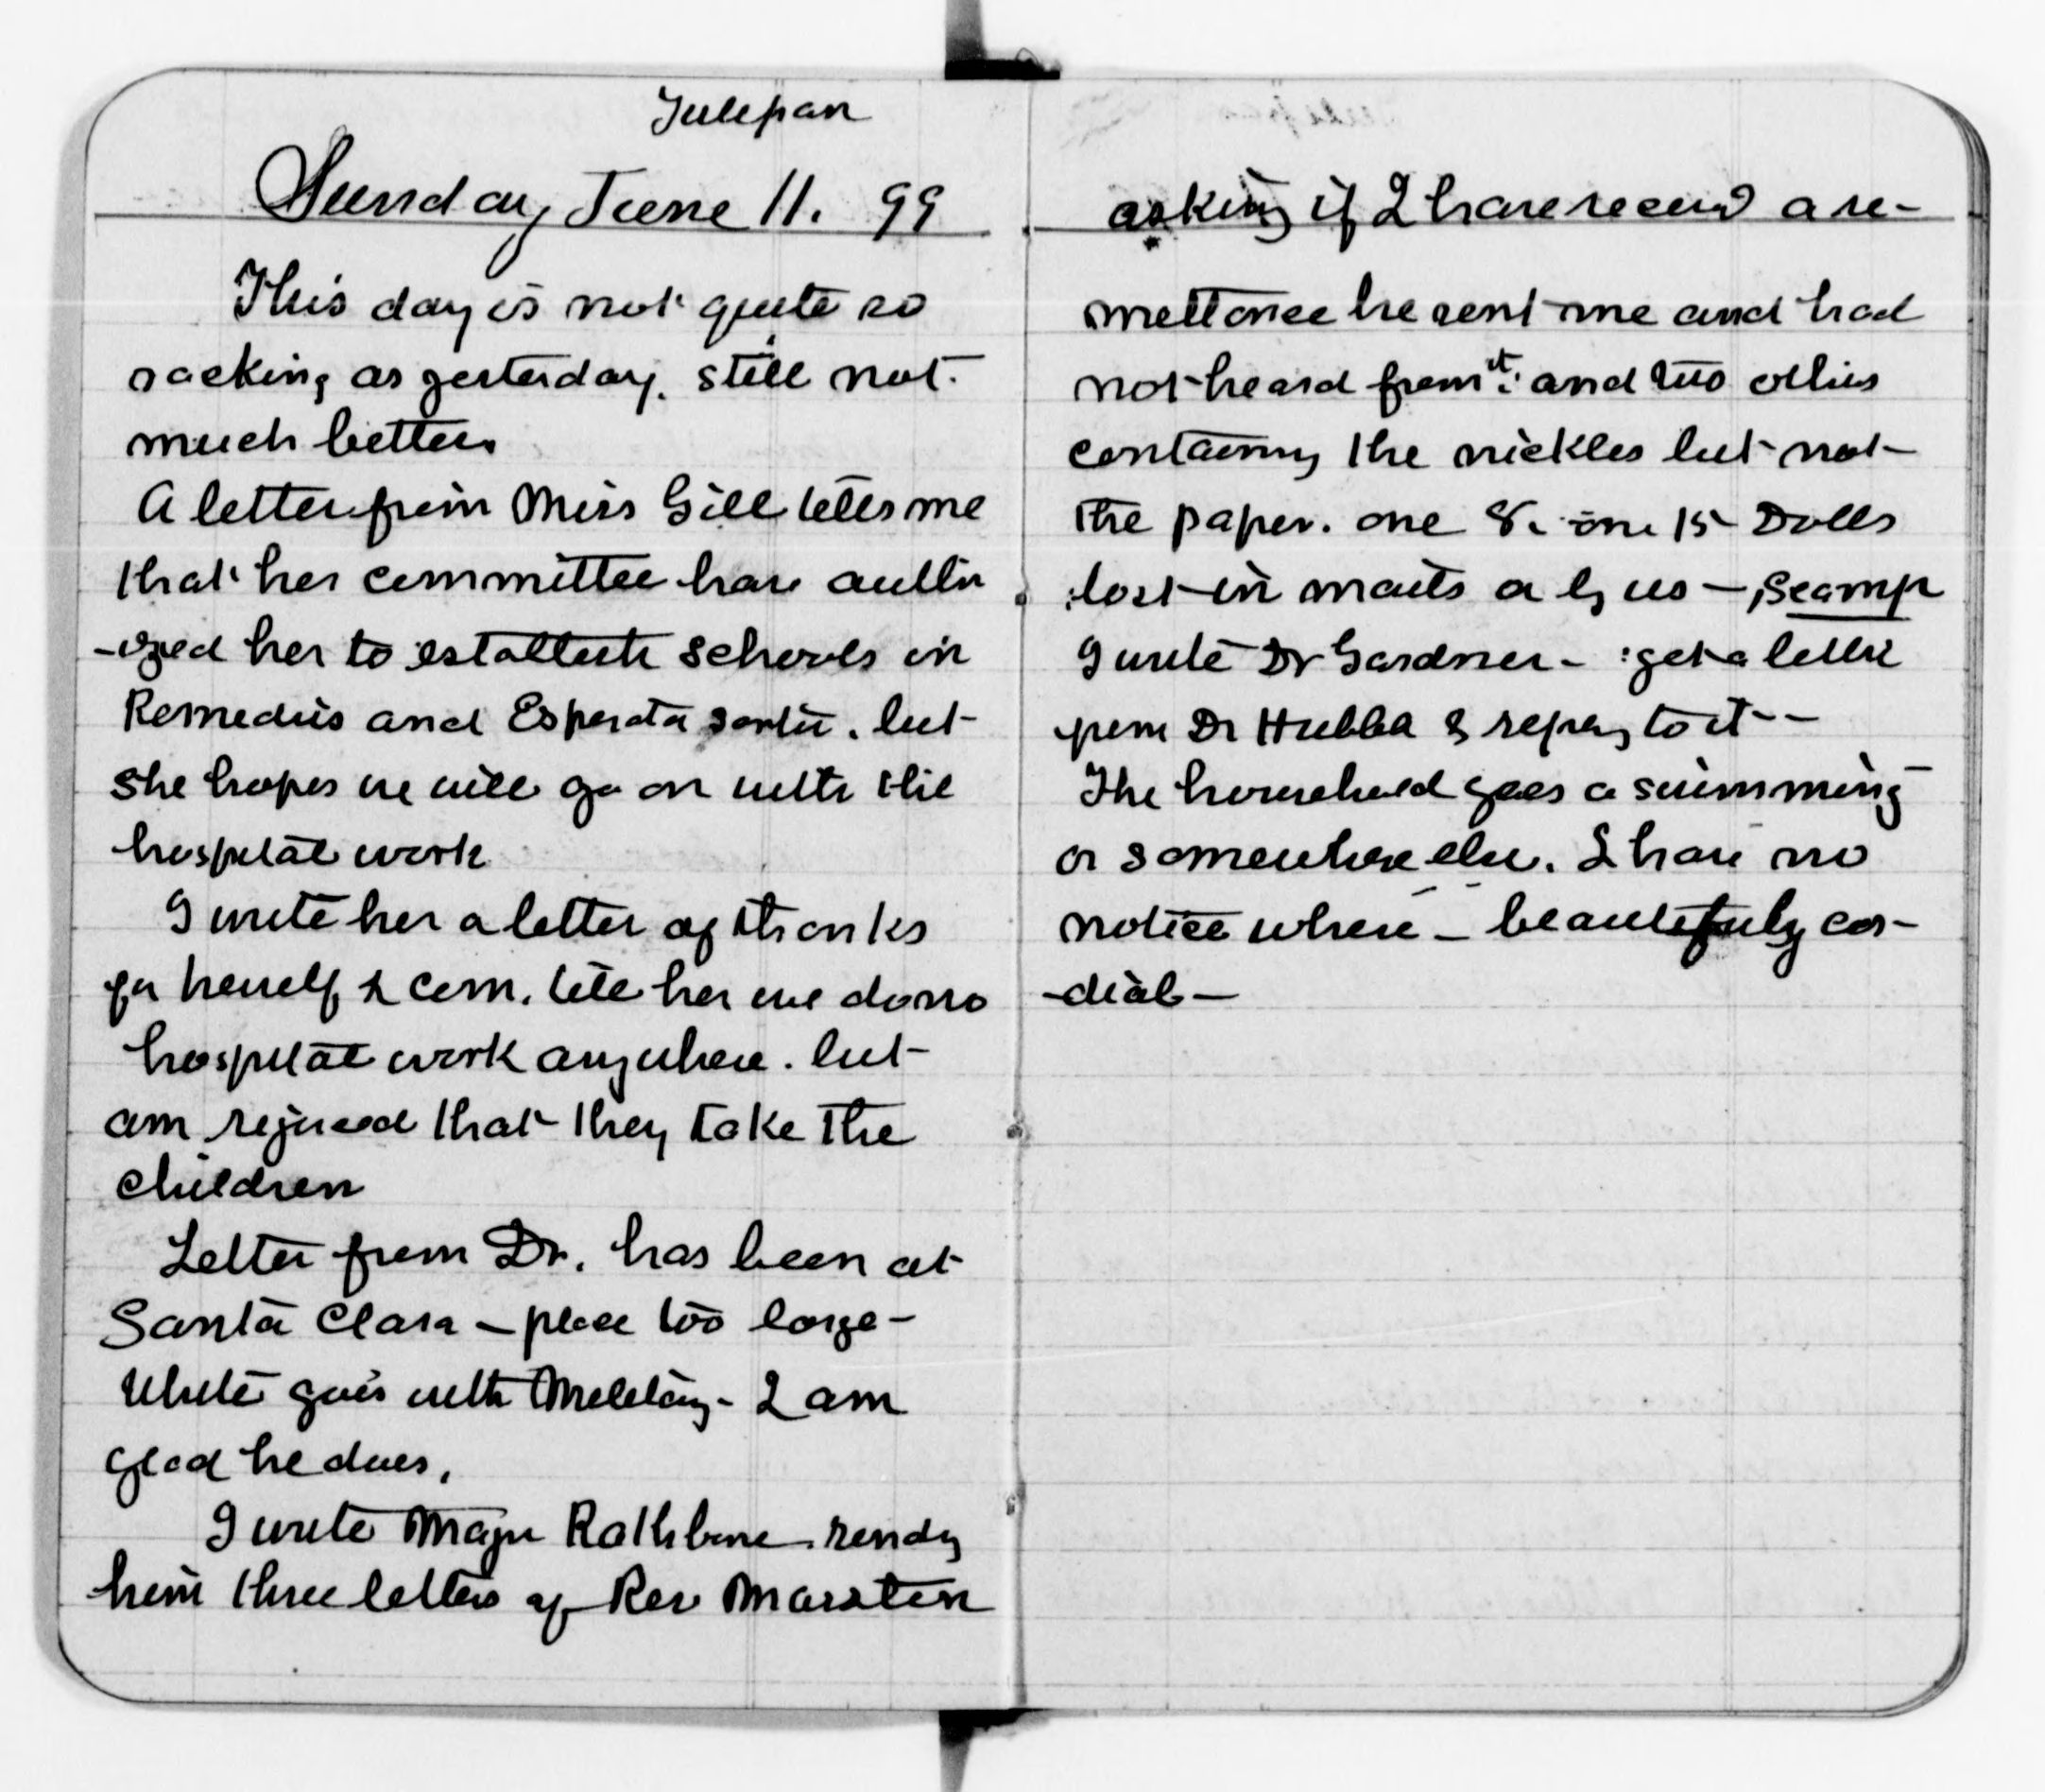 Tulepan
Sunday June 11. 99
This day is not quite so
racking as yesterday. still not
much better.
A letter from Miss Gill tells me
that her committee have author
-ized her to establish schools in
Remedios and Esperata Santu. but
she hopes we will go on with the
hospital work
I write her a letter of thanks
for herself & com. tell her we do no
hospital work anywhere. but
am rejoiced that they take the
children
Letter from Dr. has been at
Santa Clara – place too large –
White goes with Military – I am
glad he does,
I write Major Rathbone. sendg
him three letters of Rev Marsten
asking if I have receivd a re-
mittance he sent me and had
not heard from it: and two others
containing the nickles but not
the paper. one 8. one 15 Dolls
lost in mails a by us –, Scamp
I write Dr Gardner – get a letter
from Dr Hubbell & reply to it – –
The household goes a swimming
or somewhere else. I have no
notice where – beautifuly cor-
-dial –